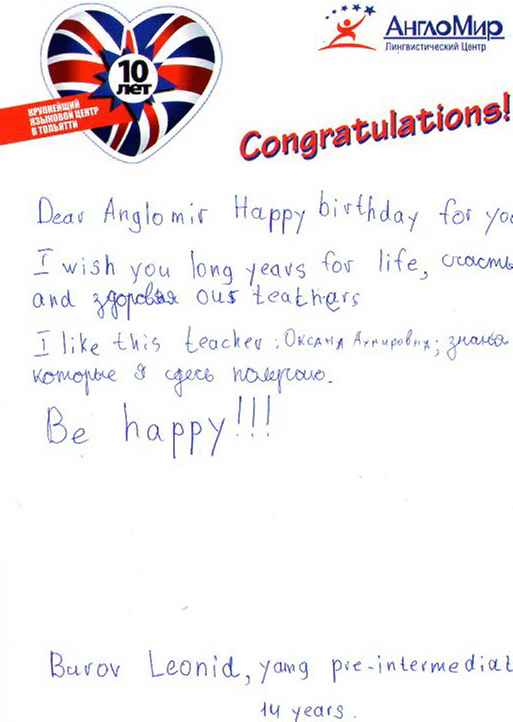 10
лет
КРУПНЕЙШИЙ
ЯЗЫКОВОЙ ЦЕНТР
В ТОЛЬЯТТИ
АнглоМир
Лингвистический Центр
Congratulations!
Dear Anglomir Happy birthday for you
I wish you long years for life, счасть
and здоровья our teathers
I like this teacher: Оксана; знанья
которые я здесь получаю.
Be happy!!!
Burov Leonid, yang pre-intermediat
14 years.